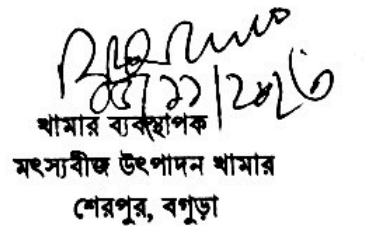 খামার ব্যবস্থাপক
মৎস্যবীজ উৎপাদন খামার
শেরপুর, বগুড়া